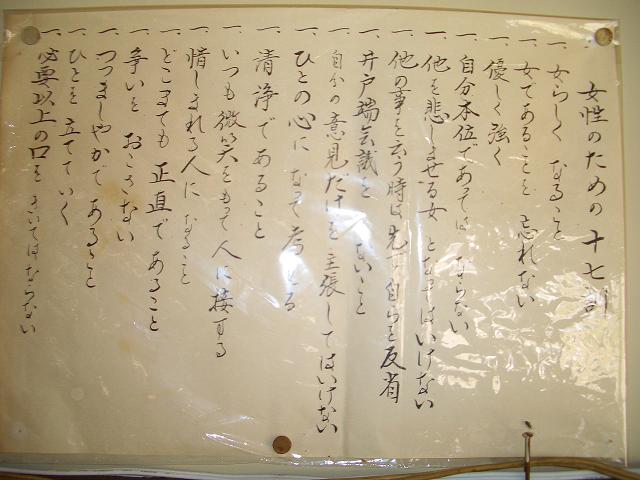 女性のための十七訓
一、女らしくなること
一、女であることを忘れない
一、優しく強く
一、自分本位であってはならない
一、他を悲しませる女となってはいけない
一、他の事を云う時は先づ自らを反省
一、井戸端会議をしないこと
一、自分の意見だけを主張してはいけない
一、ひとの心になって考える
一、清浄であること
一、いつも微笑をもって人に接する
一、惜しまれる人になること
一、どこまでも正直であること
一、争いをおこさない
一、つつましやかであること
一、ひとを立てていく
一、必要以上の口をきいてはならない